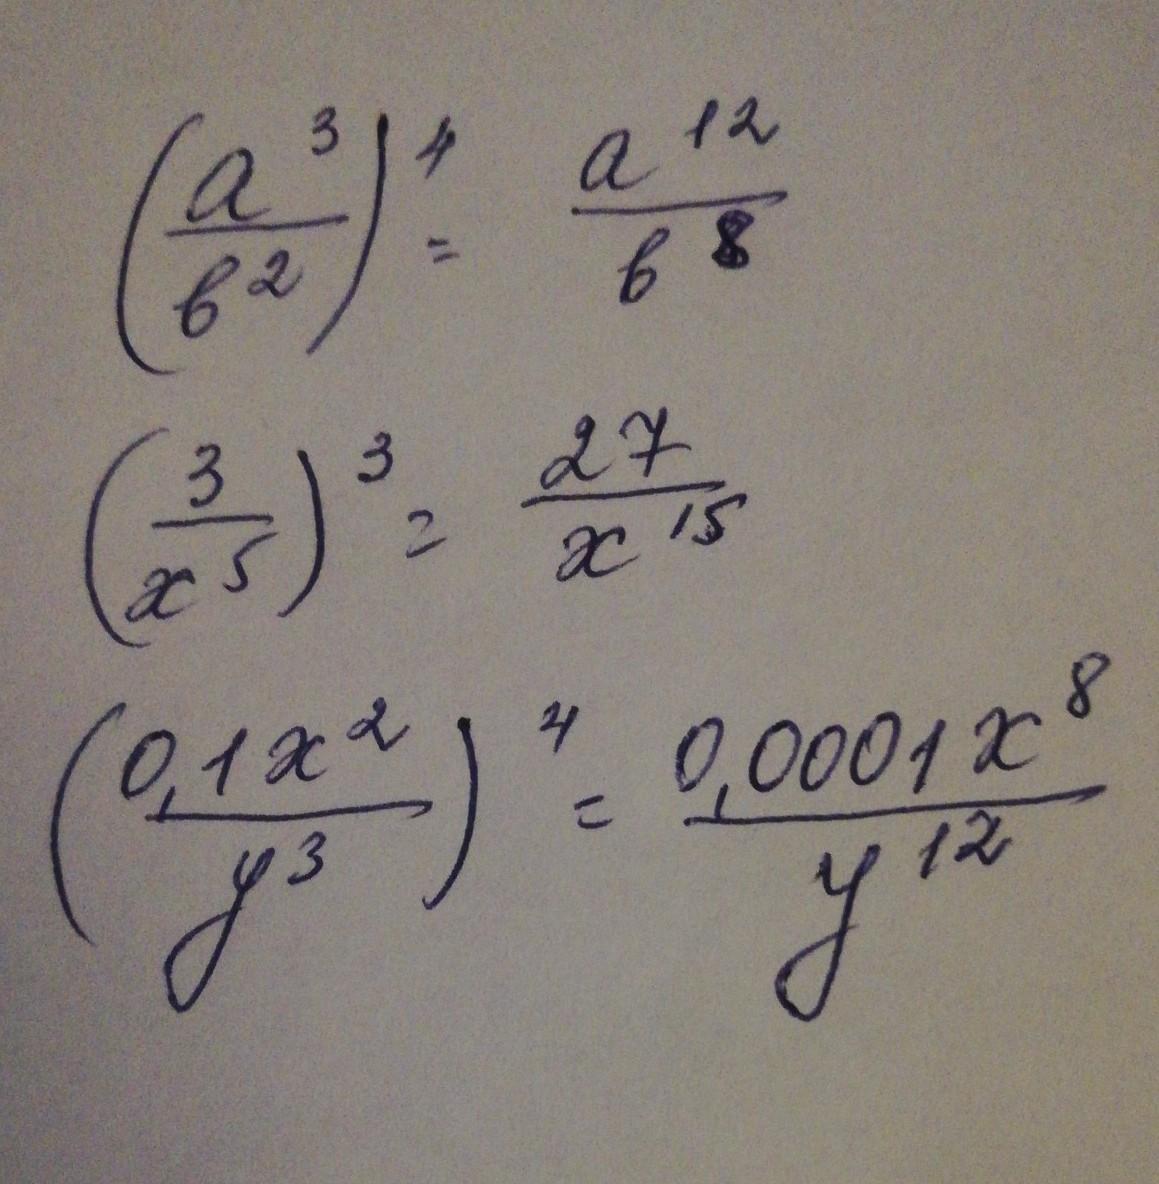 (a³/b²)⁴ = a¹²/b⁸
(3/x⁵)³ = 27/x¹⁵
(0,1x²/y³)⁴ = 0,0001x⁸/y¹²